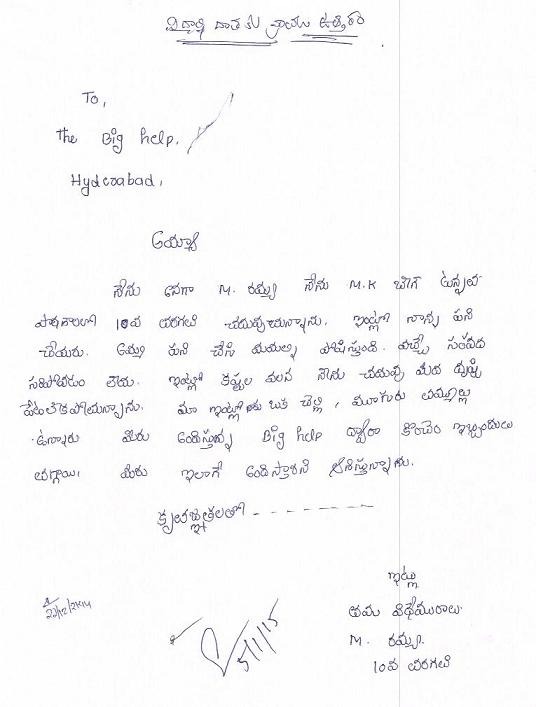 విద్యార్థి దాతకు వ్రాయు ఉత్తరం
To,
The Big help,
Hyderabad,
అయ్యా
నేను అనగా M. రమ్య నేను M.K బాగ్ ఉన్నత
పాఠశాలలో 10వ తరగతి చదువుచున్నాను. ఇంట్లో నాన్న పని
చేయరు. అమ్మ పని చేసి మమల్ని పోషిస్తుంది. వచ్చే సంపద
సరిపోవడం లేదు. ఇంట్లో కష్టాల వలన నేను చదువు మీద దృష్టి
పెట్టలేకపోయున్నాను. మా ఇంట్లో నాకు ఒక చెల్లి, ముగురు తమ్ముల్లు
ఉన్నారు మీరు అందిస్తున్న Big help ద్వారా కొంచెం ఇబ్బందులు
తగ్గాయి. మీరు ఇలాగే అందిస్తారని ఆశిస్తున్నాను.
కృతజ్ఞతలతో
ఇట్లు
తమ విధేయురాలు
M. రమ్య
10వ తరగతి
22/12/2014
5/1/15